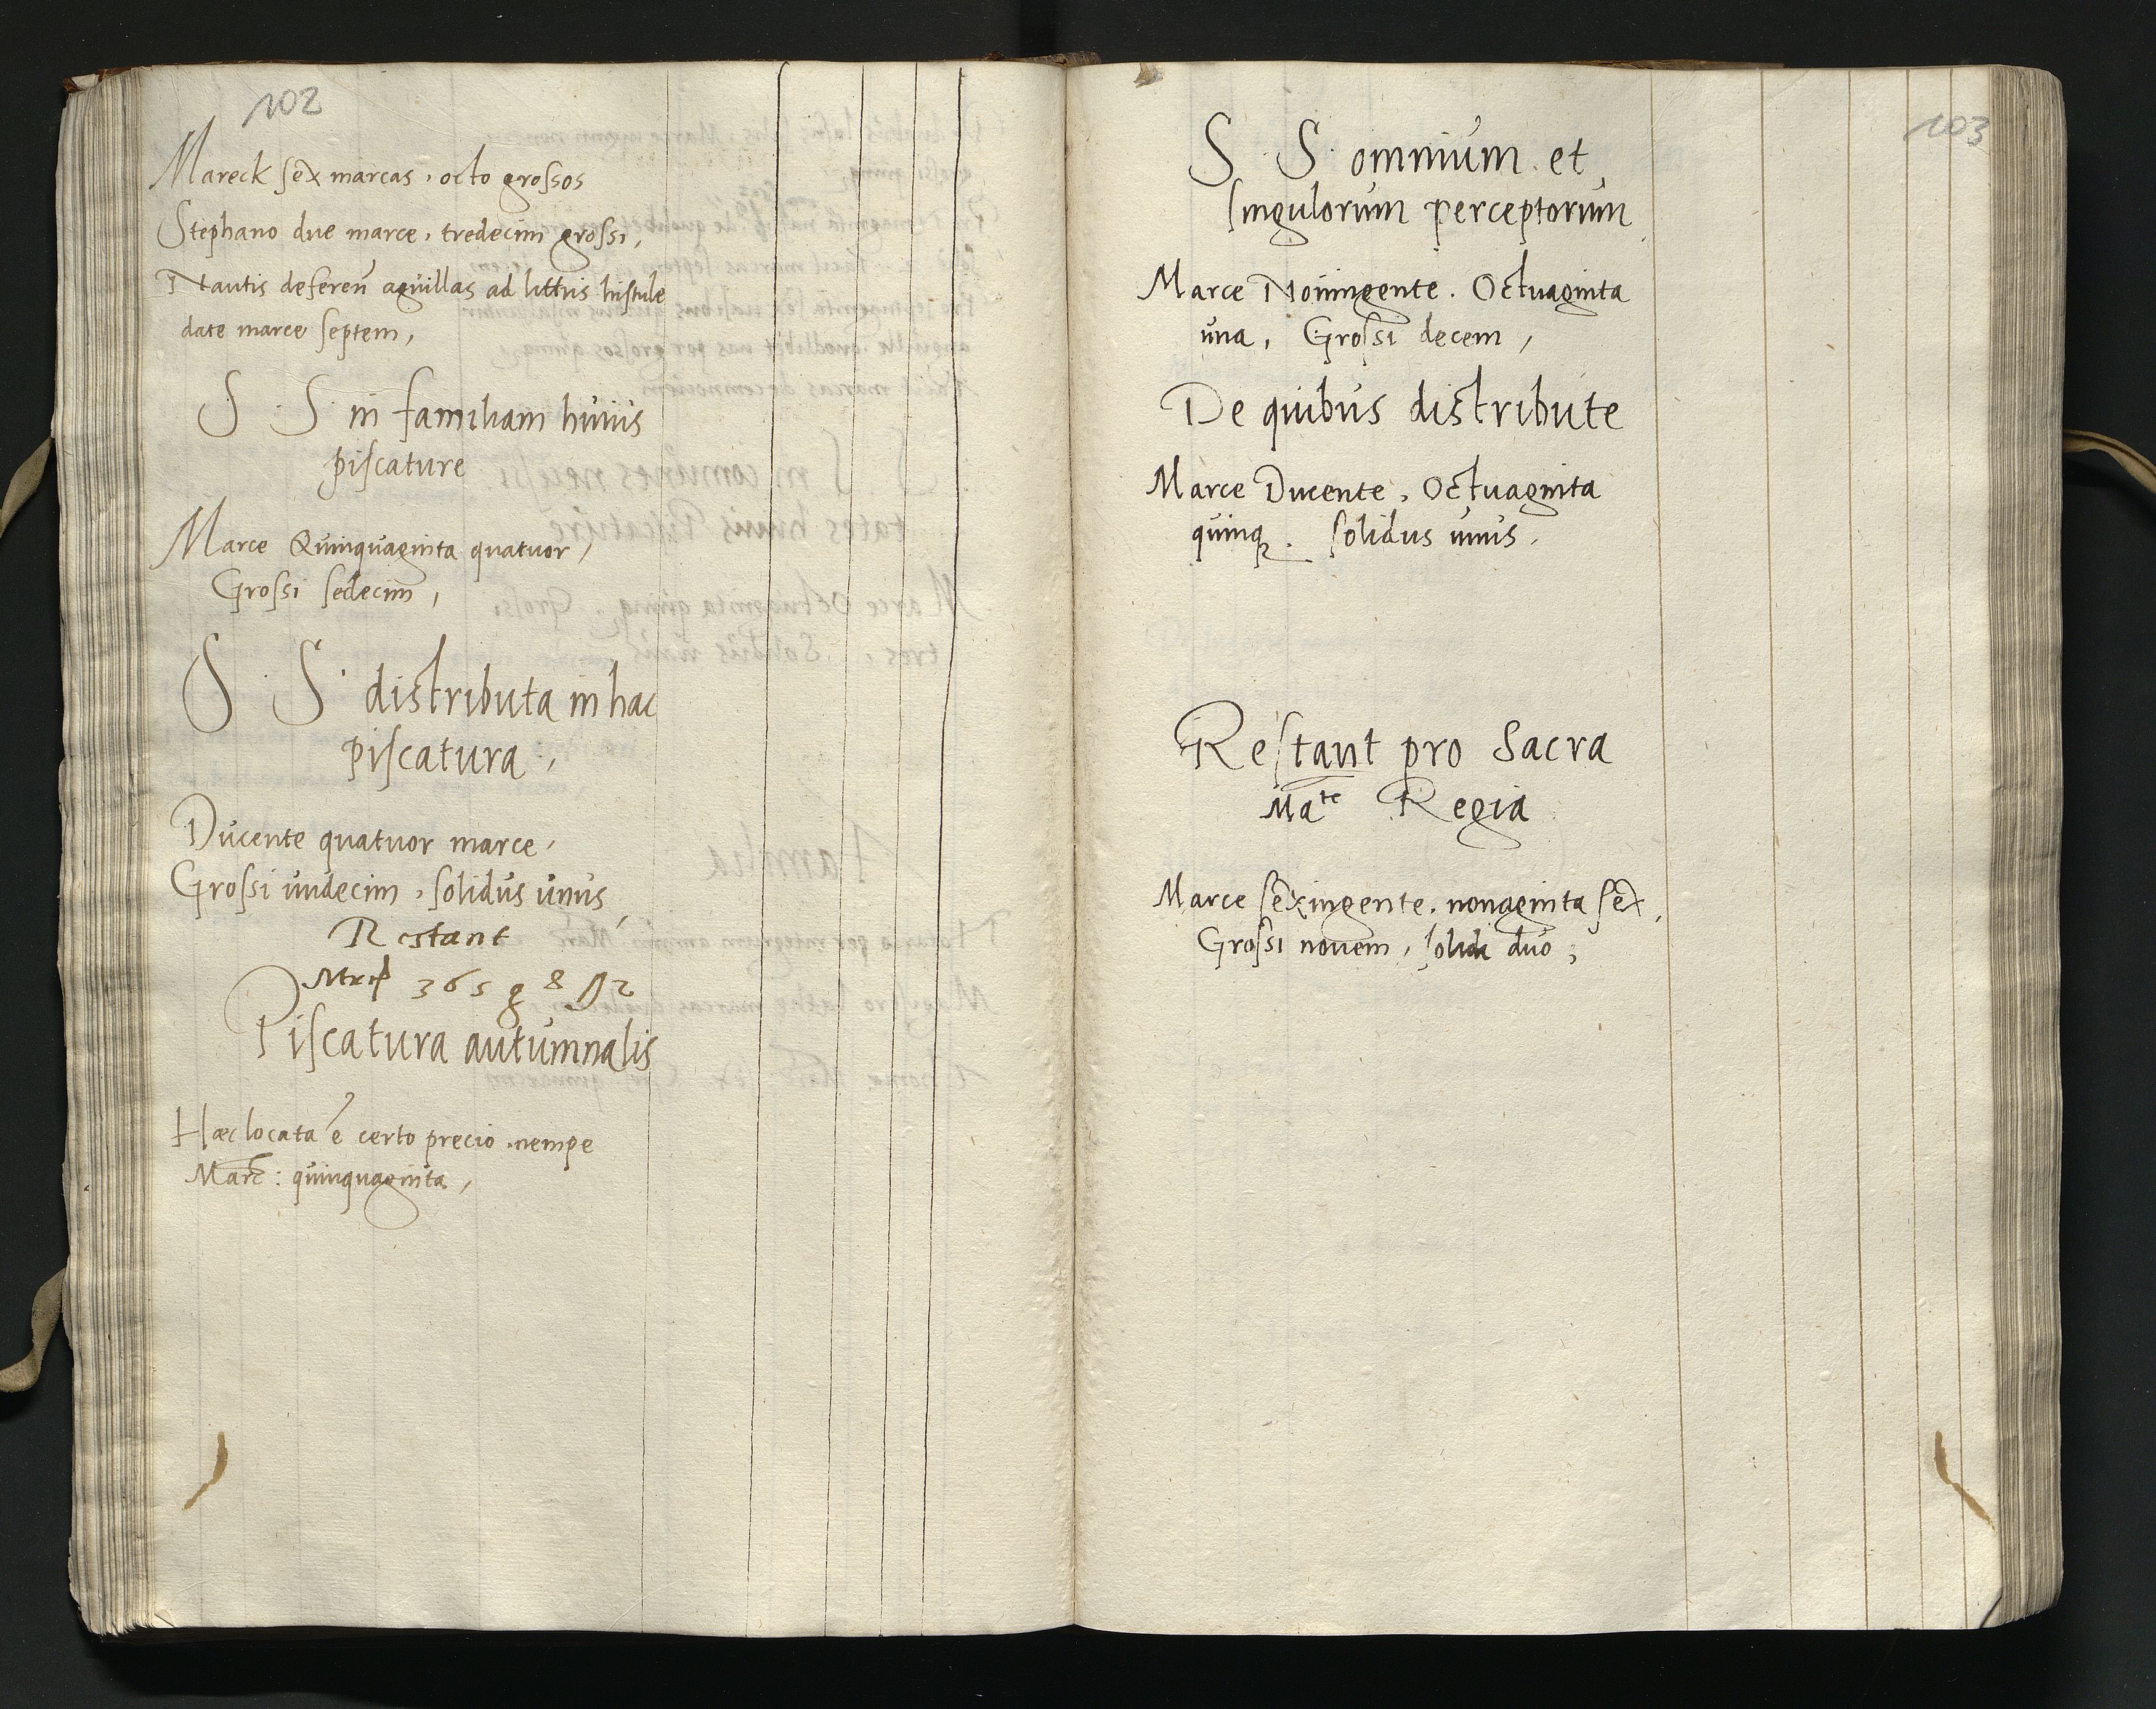 102
Mareck sex marcas, octo grossos
Stephano due marce, tredecim grossi,
Nautis deferen̄ aguillas ad littus histule
date marce septem,
S. S. in familiam huius
piscature
Marce Quinquaginta quatuor,
Grossi sedecim,
S. S. distributa in hac
piscatura,
Ducente quatuor marce,
Grossi undecim, solidus unus,
Restant
365 g 8 2
Piscatura autumnalis
Hæc locata ē certo precio .nempe
Marc̄: quinquaginta,
103
S. S. omnium et
singulorum perceptorum
Marce Noningente. Octuaginta
una, Grossi decem,
De quibus distribute
Marce Ducente, Octuaginta
quinqꝫ. solidus unus.
Restant pro Sacra
Ma^te Regia
Marce sexingente. nonaginta sex,
Grossi novem, solidi duo,